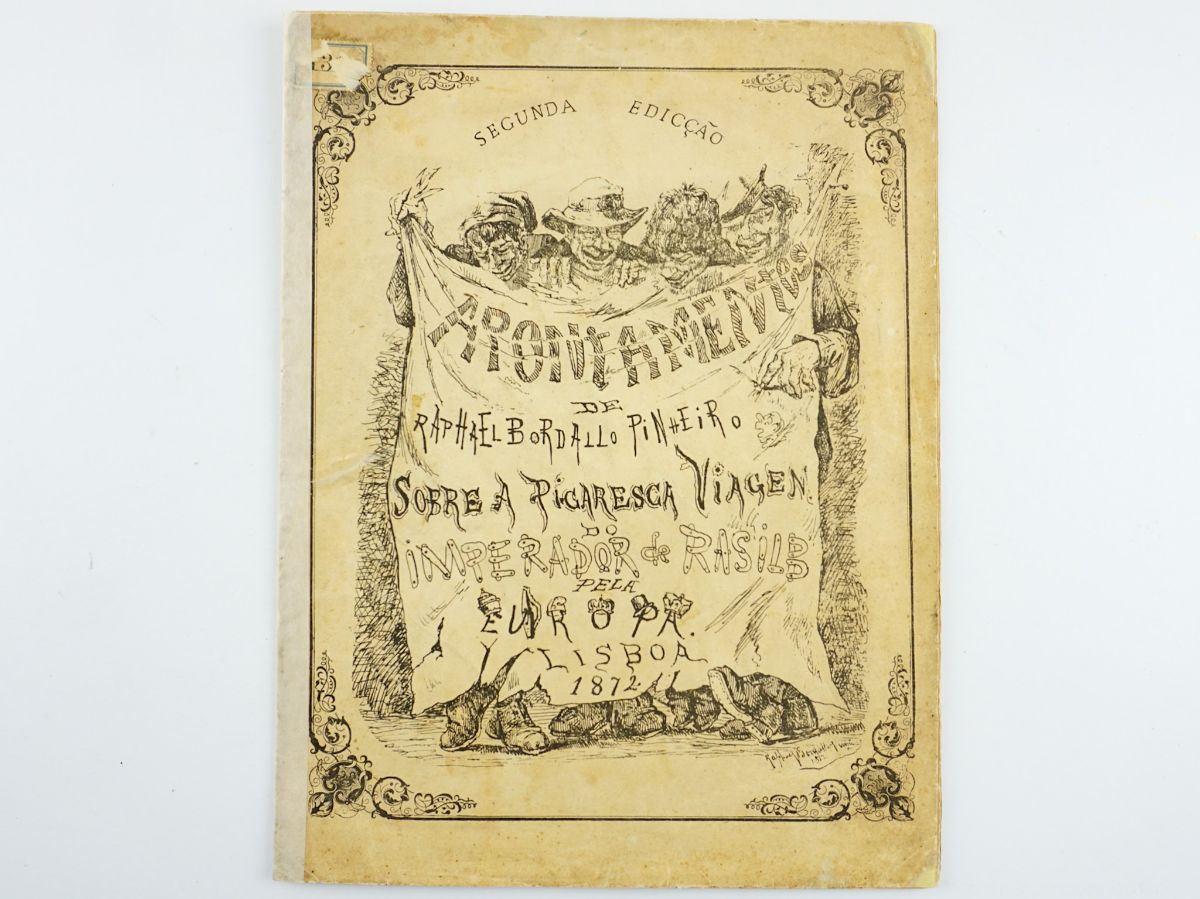 SEGUNDA EDICÇÃO
APONTAMENTOS
DE
RAPHAEL BORDALLO PINHEIRO
SOBRE A PICARESCA VIAGEN
DO
IMPERADOR de RASILB
PELA
EUROPA.
LISBOA
1872